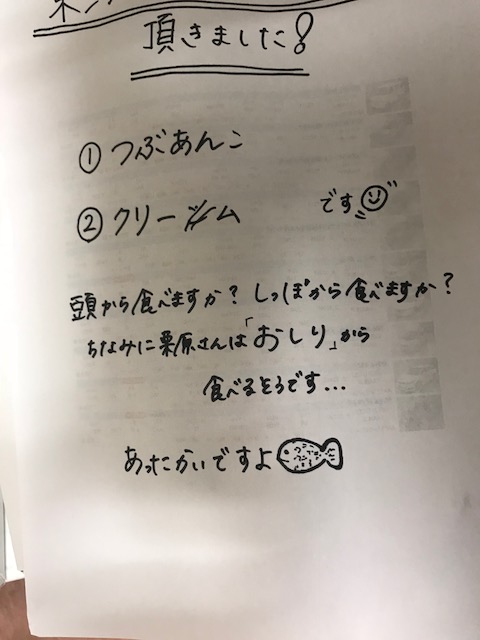 頂きました!
① つぶあんこ
② クリーム
です
頭から食べますか? しっぽから食べますか?
ちなみに栗原さんは「おしり」から
食べるそうです...
あったかいですよ